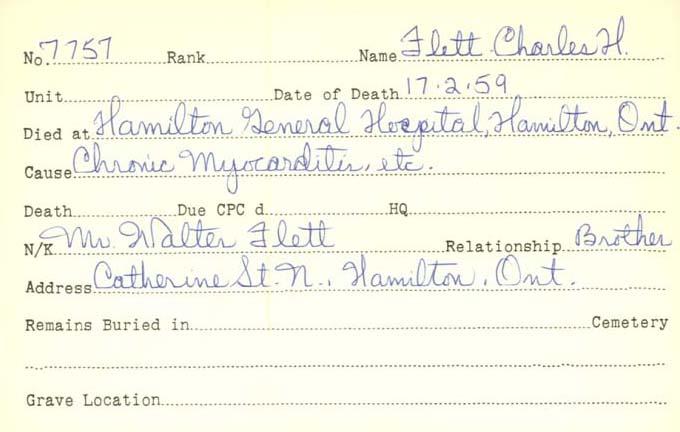 No. 7757 Rank Name Flett Charles H.
Unit Date of Death 17.2.59
Died at Hamilton General Hospital, Hamilton, Ont.
Cause Chronic Myocarditis, etc.
Death Due CPC d HQ
N/K Mr. Walter Flett Relationship Brother
Address Catherine St. N., Hamilton, Ont.
Remains Buried in Cemetery
Grave Location